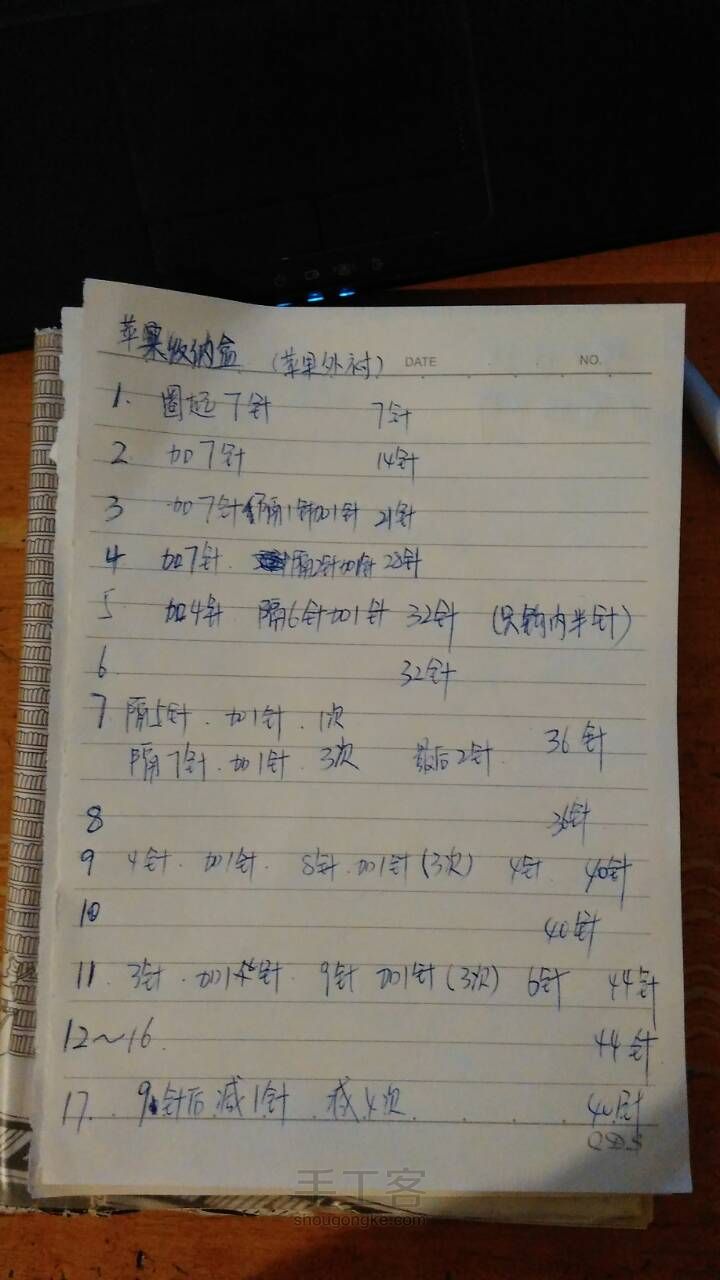 苹果收纳盒 (苹果外衬) DATE NO.
1. 圈起7针 7针
2 加7针 14针
3 加7针 隔1针加1针 21针
4 加7针. 隔2针加1针 28针
5 加4针 隔6针加1针 32针 (只钩内半针)
6 32针
7 隔5针.加1针.1次
隔7针.加1针.3次 最后2针. 36针
8 36针
9 4针.加1针. 8针.加1针(3次) 4针 40针
10 40针
11. 3针.加1针. 9针 加1针(3次) 6针 44针
12~16. 44针
17. 9针后减1针 减4次 40针
手工客
shougongke.com